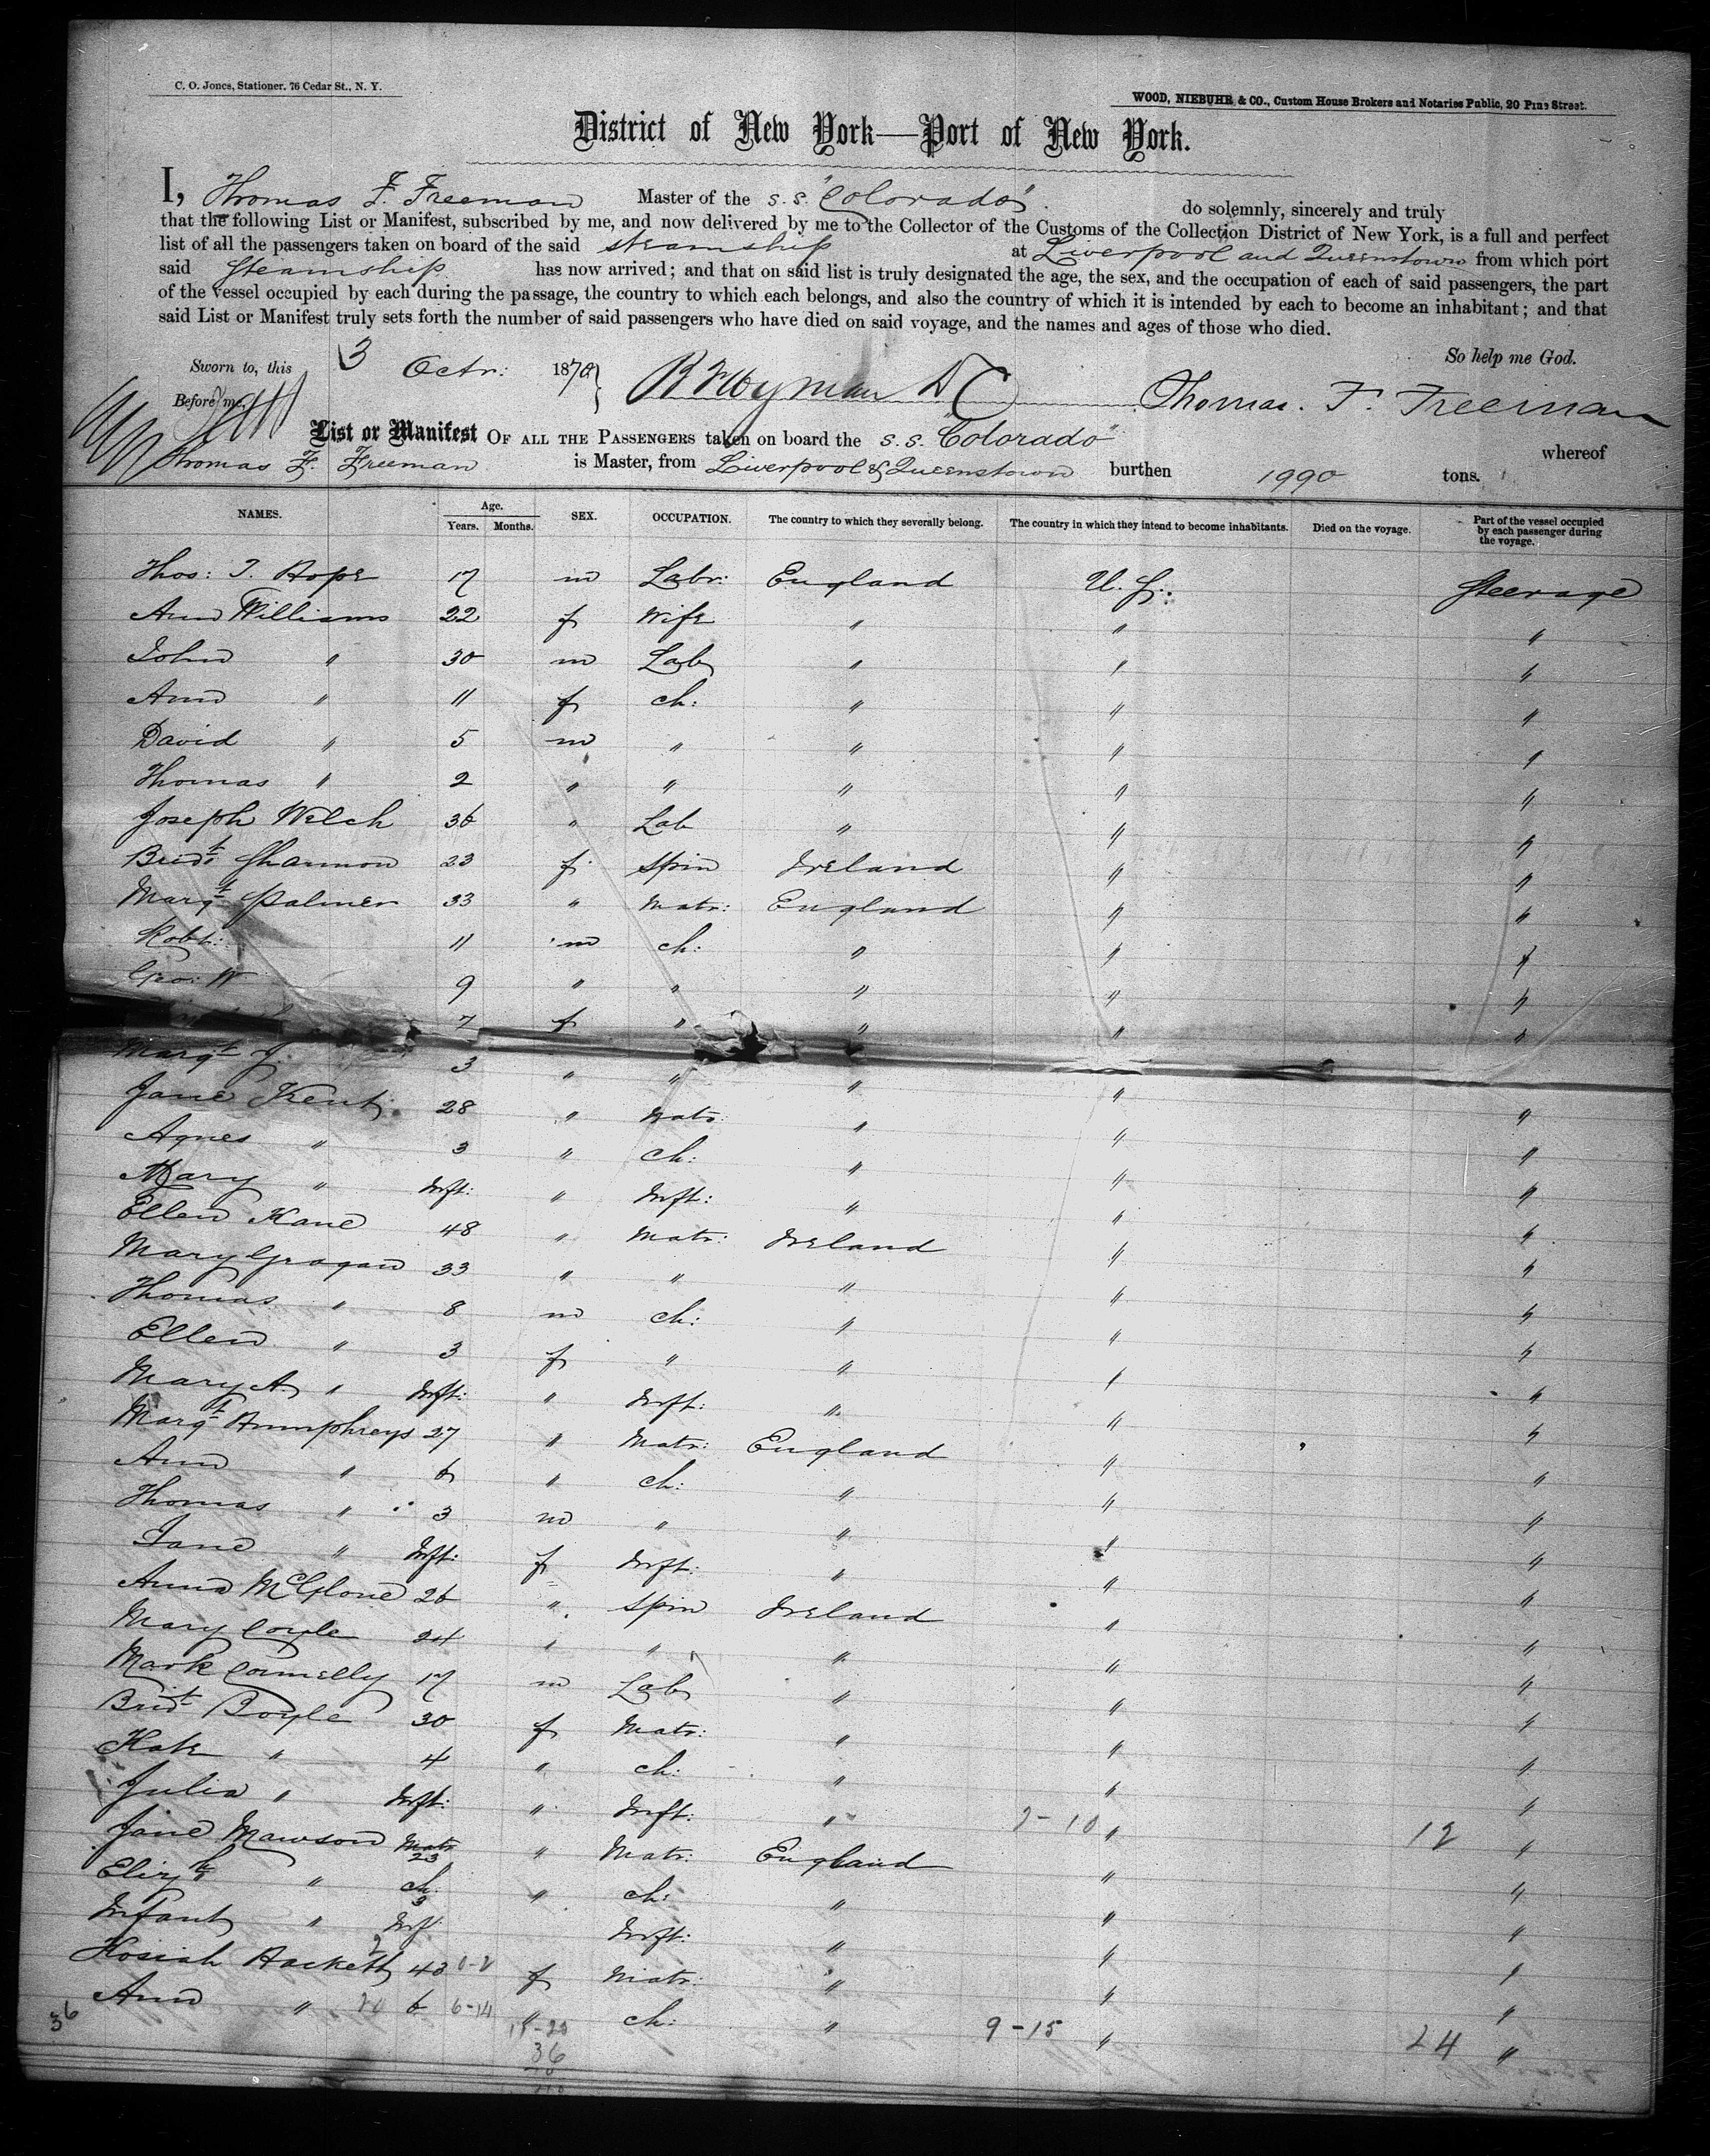 C. O. Jones, Stationer, 76 Cedar St., N. Y.
WOOD, NIEBUHR & CO., Custom House Brokers and Notaries Public, 20 Pine Street.
District of New York—Port of New York.
I, Thomas F. Freeman Master of the s.s. "Colorado" do solemnly, sincerely and truly
that the following List or Manifest, subscribed by me, and now delivered by me to the Collector of the Customs of the Collection District of New York, is a full and perfect
list of all the passengers taken on board of the said steamship at Liverpool and Queenstown from which port
said Steamship has now arrived; and that on said list is truly designated the age, the sex, and the occupation of each of said passengers, the part
of the vessel occupied by each during the passage, the country to which each belongs, and also the country of which it is intended by each to become an inhabitant; and that
said List or Manifest truly sets forth the number of said passengers who have died on said voyage, and the names and ages of those who died.
So help me God.
Sworn to, this 3 Octr: 1870
Before me, Thomas. F. Freeman
List or Manifest OF ALL THE PASSENGERS taken on board the s.s. "Colorado" whereof
Thomas F. Freeman is Master, from Liverpool & Queenstown burthen 1990 tons.
NAMES. Age. Years. Months. SEX. OCCUPATION. The country to which they severally belong. The country in which they intend to become inhabitants. Died on the voyage. Part of the vessel occupied by each passenger during the voyage.
Thos: J. Hope 17 m Labr: England U.S. Steerage
Ann Williams 22 f Wife " " "
John " 30 m Lab " " "
Ann " 11 f ch: " " "
David " 5 m " " " "
Thomas " 2 " " " " "
Joseph Welch 36 " Lab " " "
Bridt Shannon 23 f Spin Ireland " "
Margt Palmer 33 " Matr: England " "
Robt: 11 m ch: " " "
Geo: W 9 " " " " "
7 f " " " "
Margt J. 3 " " " " "
Jane Kent 28 " Matr: " " "
Agnes " 3 " Ch: " " "
Mary " Inft: " Inft: " " "
Ellen Kane 48 " Matr: Ireland " "
Mary Grogan 33 " " " " "
Thomas " 8 m ch: " " "
Ellen " 3 f " " " "
Mary A " Inft: " Inft: " " "
Margt Humphreys 27 " Matr: England " "
Ann " 6 " ch: " " "
Thomas " 3 m " " " "
Jane " Inft: f Inft: " " "
Anna McGlone 26 " Spin Ireland " "
Mary Coyle 24 " " " " "
Mark Connelly 17 m Lab " " "
Bridt Boyle 30 f Matr: " " "
Kate " 4 " ch: " " "
Julia " Inft: " Inft: " 2-10 " 12 "
Jane Mawson Matr 23 " Matr: England " "
Elizth " ch: 3 " ch: " " "
Infant " Inf: Inft: " " "
Hosiah Hackett 43 f Matr: " " "
36 Ann " 20 6 6-14 " ch: " 9-15 " 24 "
15-20
36